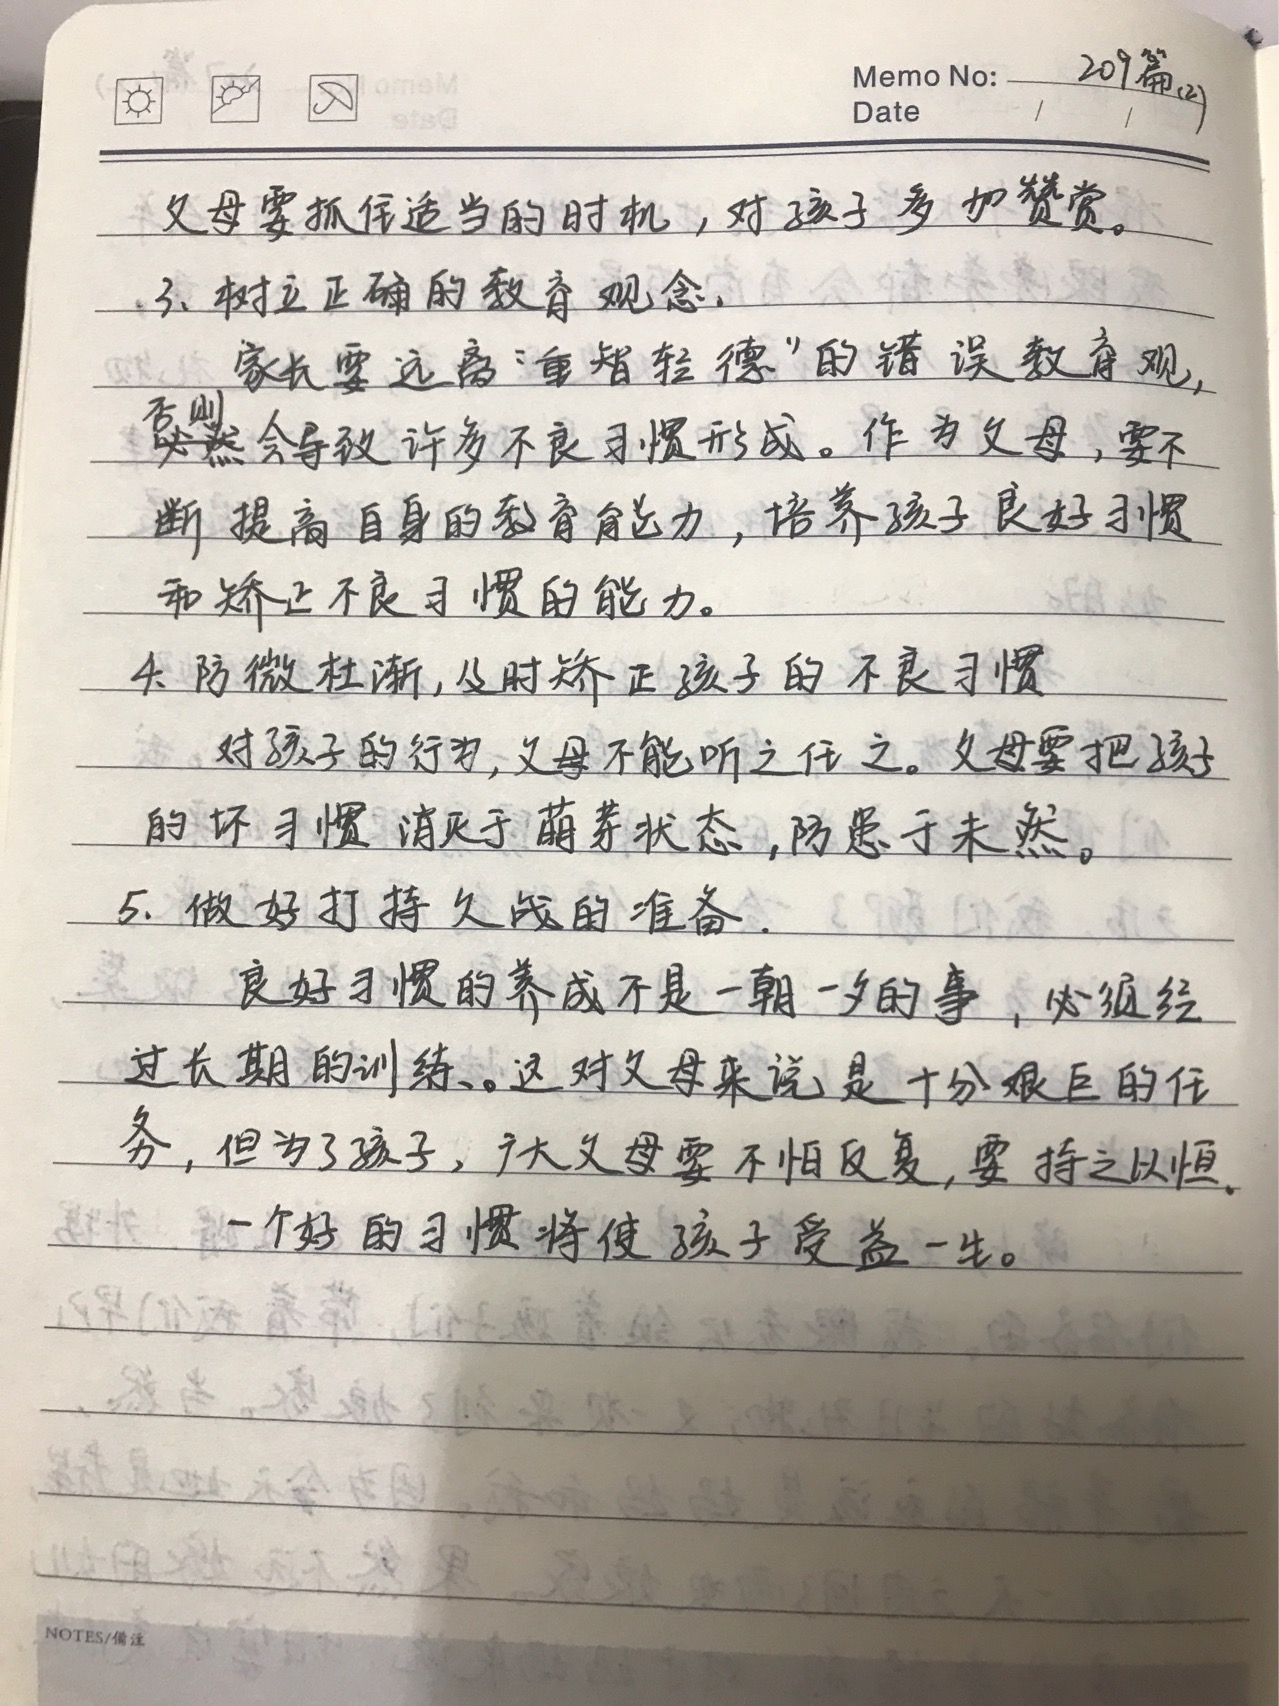 Memo No: 209篇(2)
Date / /
父母要抓住适当的时机，对孩子多加赞赏。
3、树立正确的教育观念.
家长要远离“重智轻德”的错误教育观，
否则
必然会导致许多不良习惯形成。作为父母，要不
断提高自身的教育能力，培养孩子良好习惯
和矫正不良习惯的能力。
4、防微杜渐，及时矫正孩子的不良习惯
对孩子的行为，父母不能听之任之。父母要把孩子
的坏习惯消灭于萌芽状态，防患于未然。
5、做好打持久战的准备.
良好习惯的养成不是一朝一夕的事，必须经
过长期的训练、。这对父母来说是十分艰巨的任
务，但为了孩子，广大父母要不怕反复，要持之以恒.
一个好的习惯将使孩子受益一生。
NOTES/備注